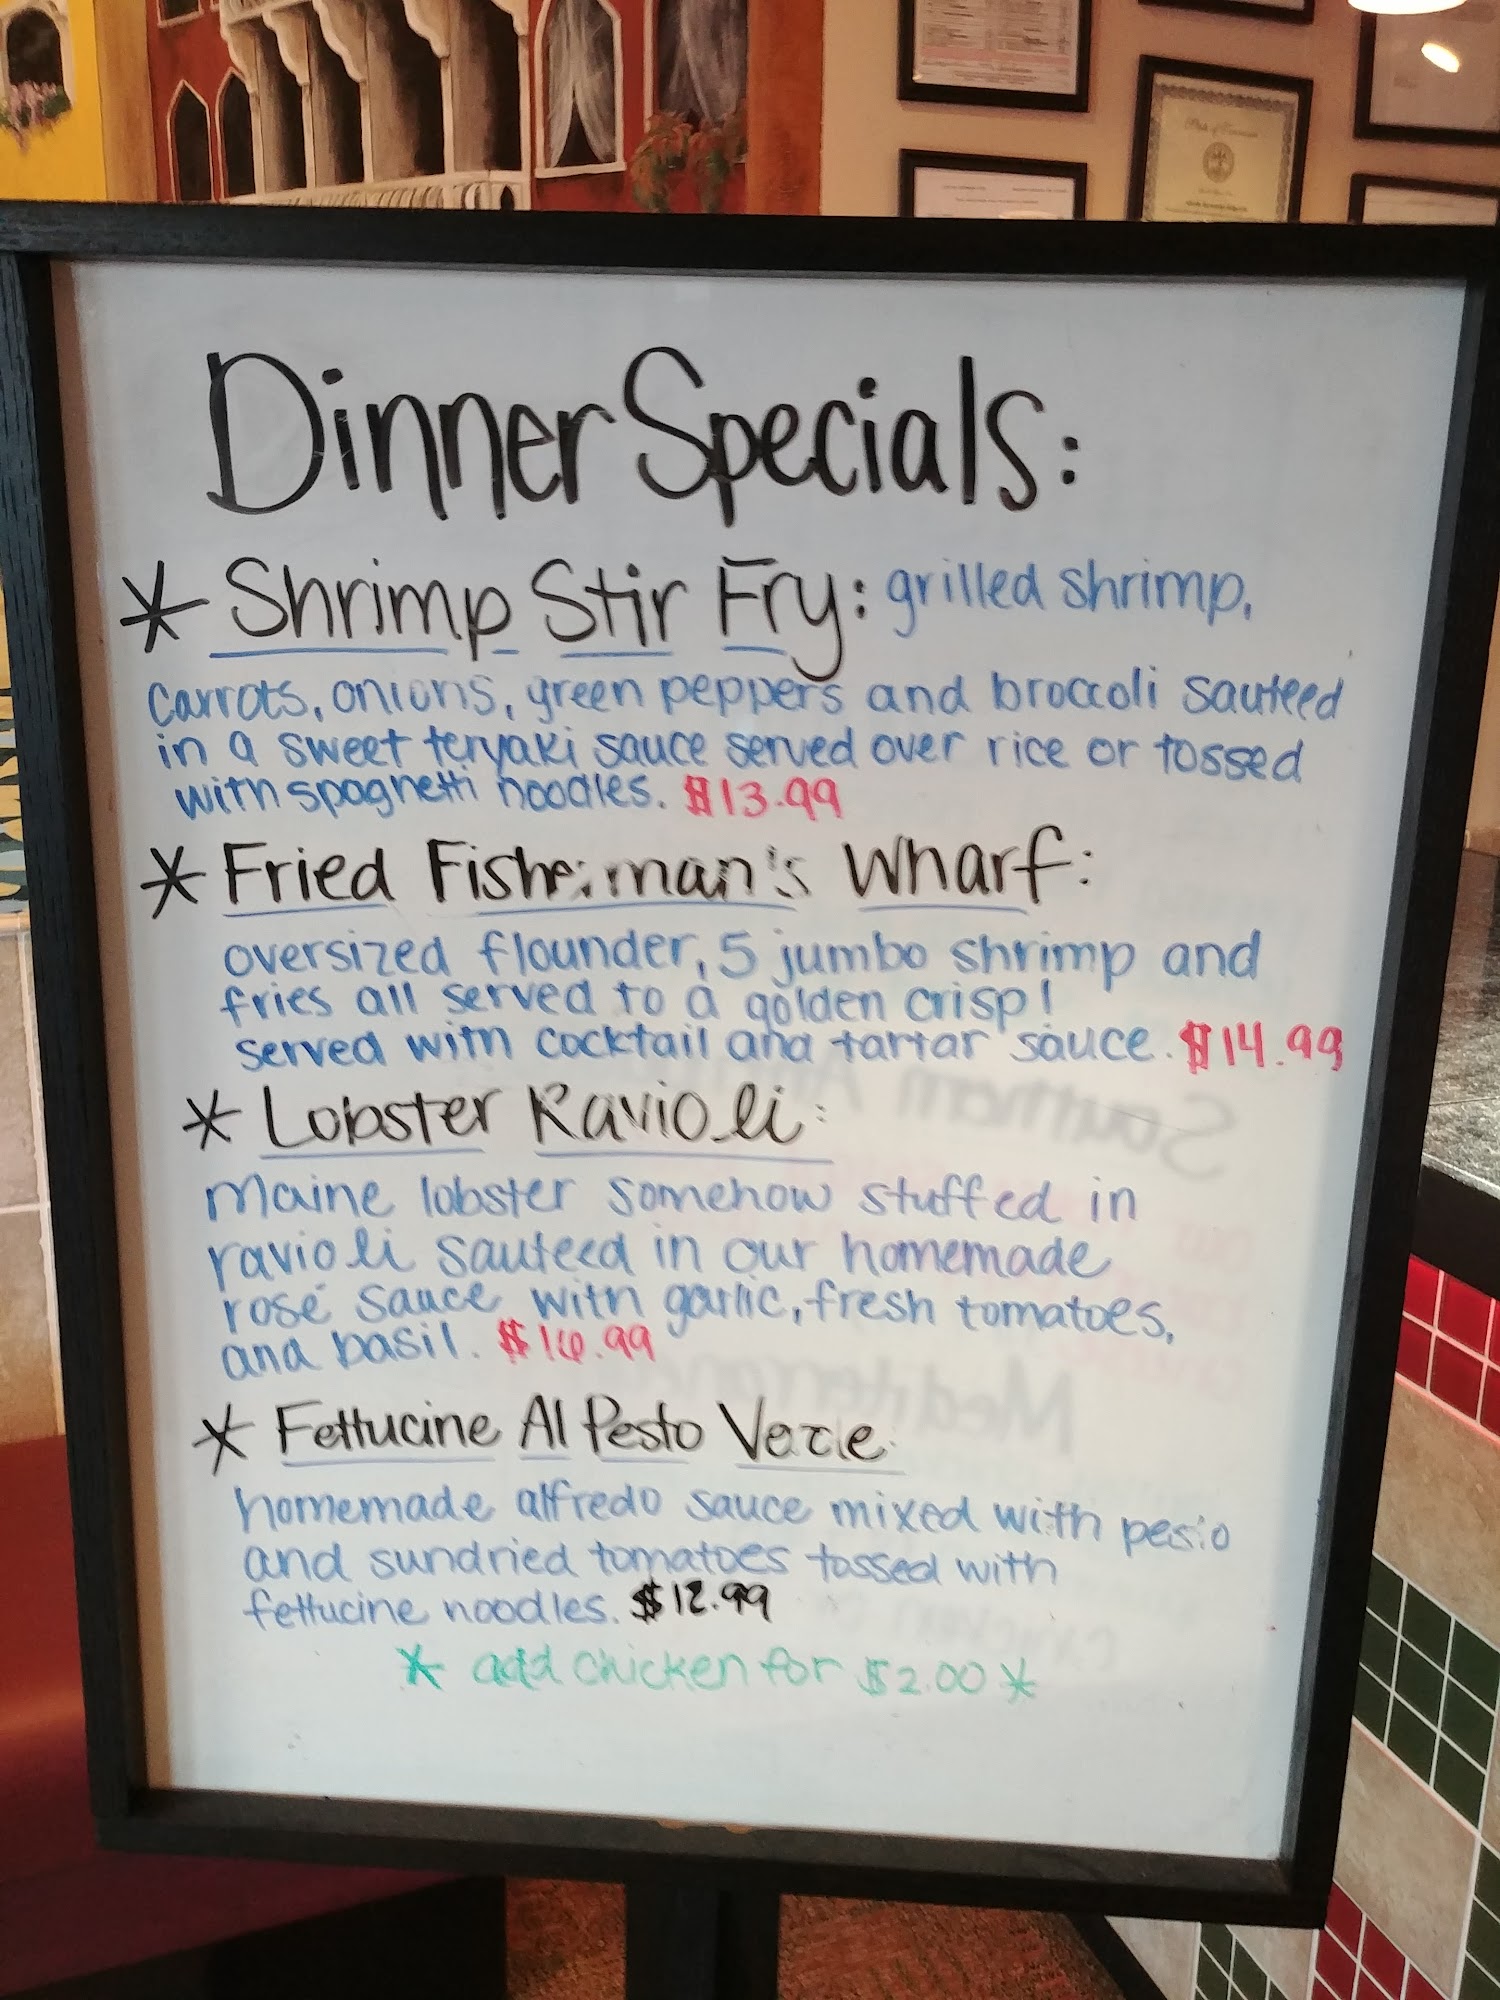 Dinner Specials:
* Shrimp Stir Fry: grilled shrimp,
carrots, onions, green peppers and broccoli sauteed
in a sweet teryaki sauce served over rice or tossed
with spaghetti noodles. $13.99
* Fried Fisherman's Wharf:
oversized flounder, 5 jumbo shrimp and
fries all served to a golden crisp!
served with cocktail and tartar sauce. $14.99
* Lobster Ravioli:
Maine lobster somehow stuffed in
ravioli sauteed in our homemade
rosé sauce with garlic, fresh tomatoes,
and basil. $16.99
* Fettucine Al Pesto Verde
homemade alfredo sauce mixed with pesto
and sundried tomatoes tossed with
fettucine noodles. $12.99
* add chicken for $2.00 *